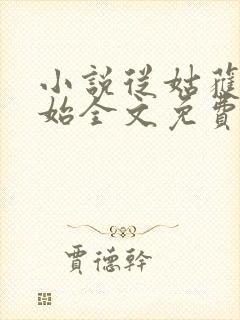 小說從姑蘓
始全文免費
賈德幹